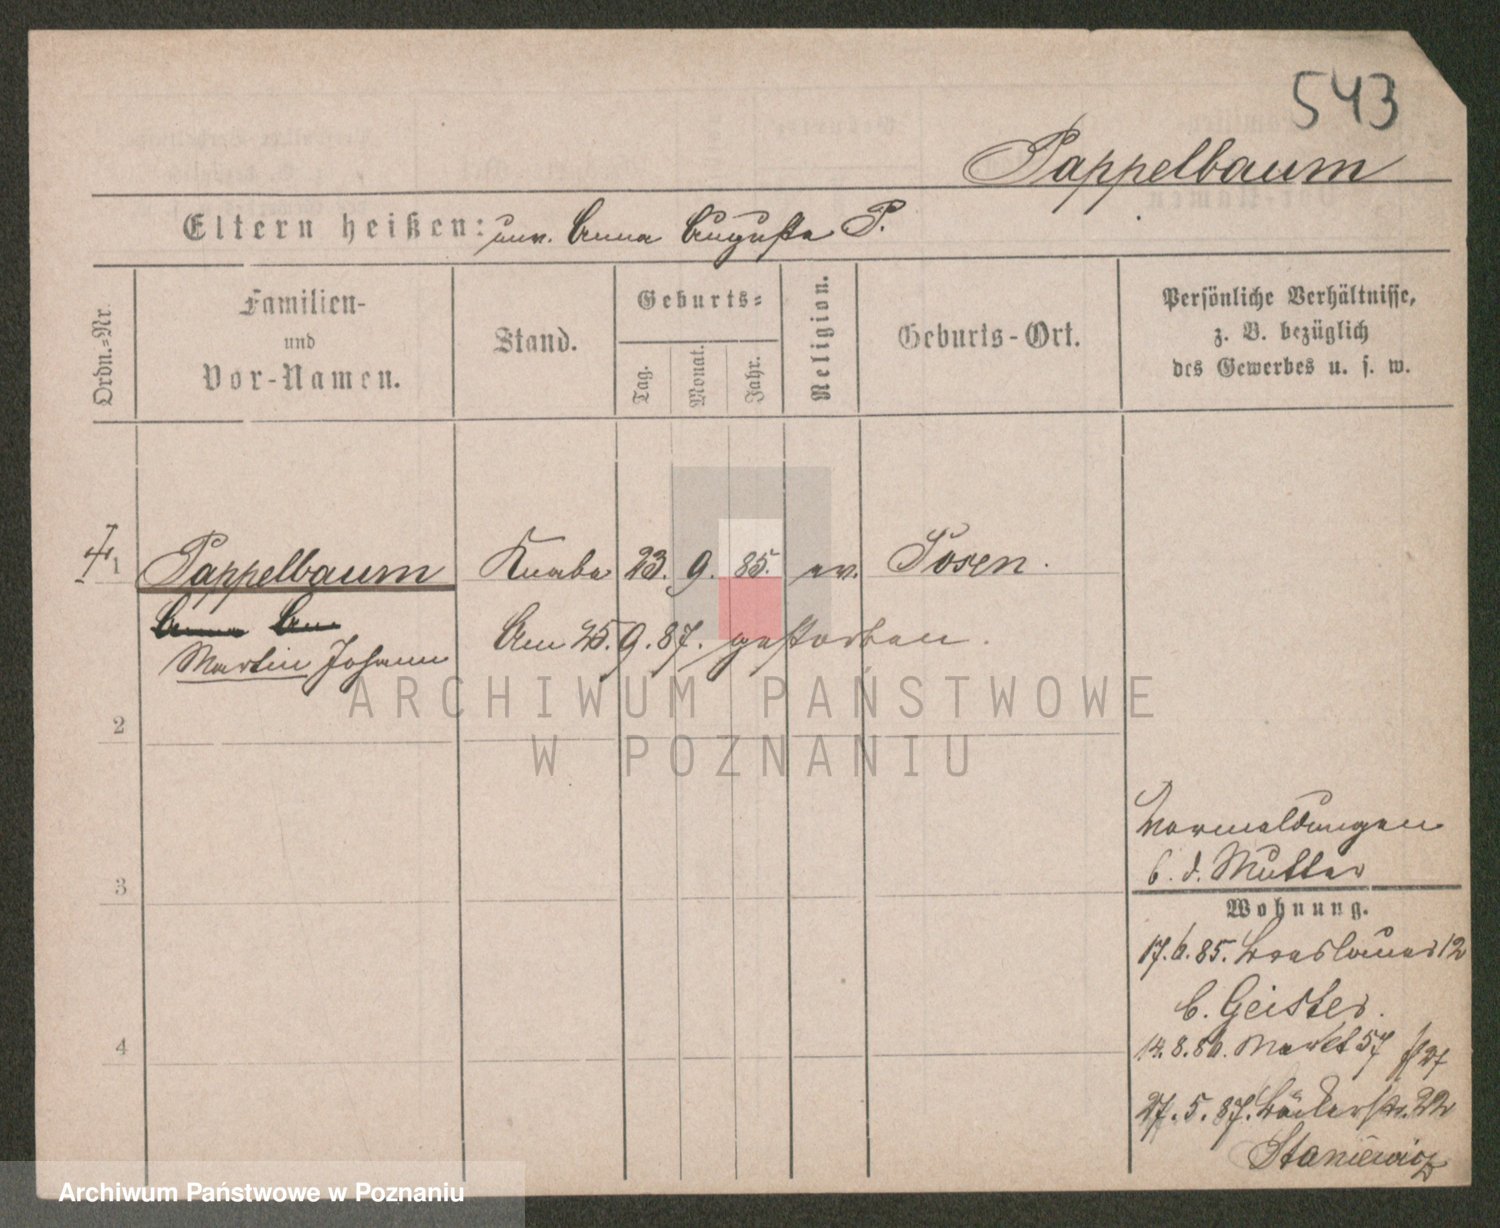 543
Pappelbaum
Eltern heißen: unv. Anna Auguste P.
Ordn.-Nr.
Familien-
und
Vor-Namen.
Stand.
Geburts-
Tag.
Monat.
Jahr.
Religion.
Geburts-Ort.
Persönliche Verhältnisse,
z. B. bezüglich
des Gewerbes u. s. w.
1 Pappelbaum Knabe 23. 9. 85. ev. Posen.
Martin Johann
Am 25. 9. 87. gestorben.
ARCHIWUM PAŃSTWOWE
W POZNANIU
2
3
4
Vormeldungen
b. d. Mutter
Wohnung.
17. 6. 85. Breslauer 12
b. Geister.
14. 8. 86. Markt 57
27. 5. 87. Bäckerstr. 22
Staniewicz
Archiwum Państwowe w Poznaniu